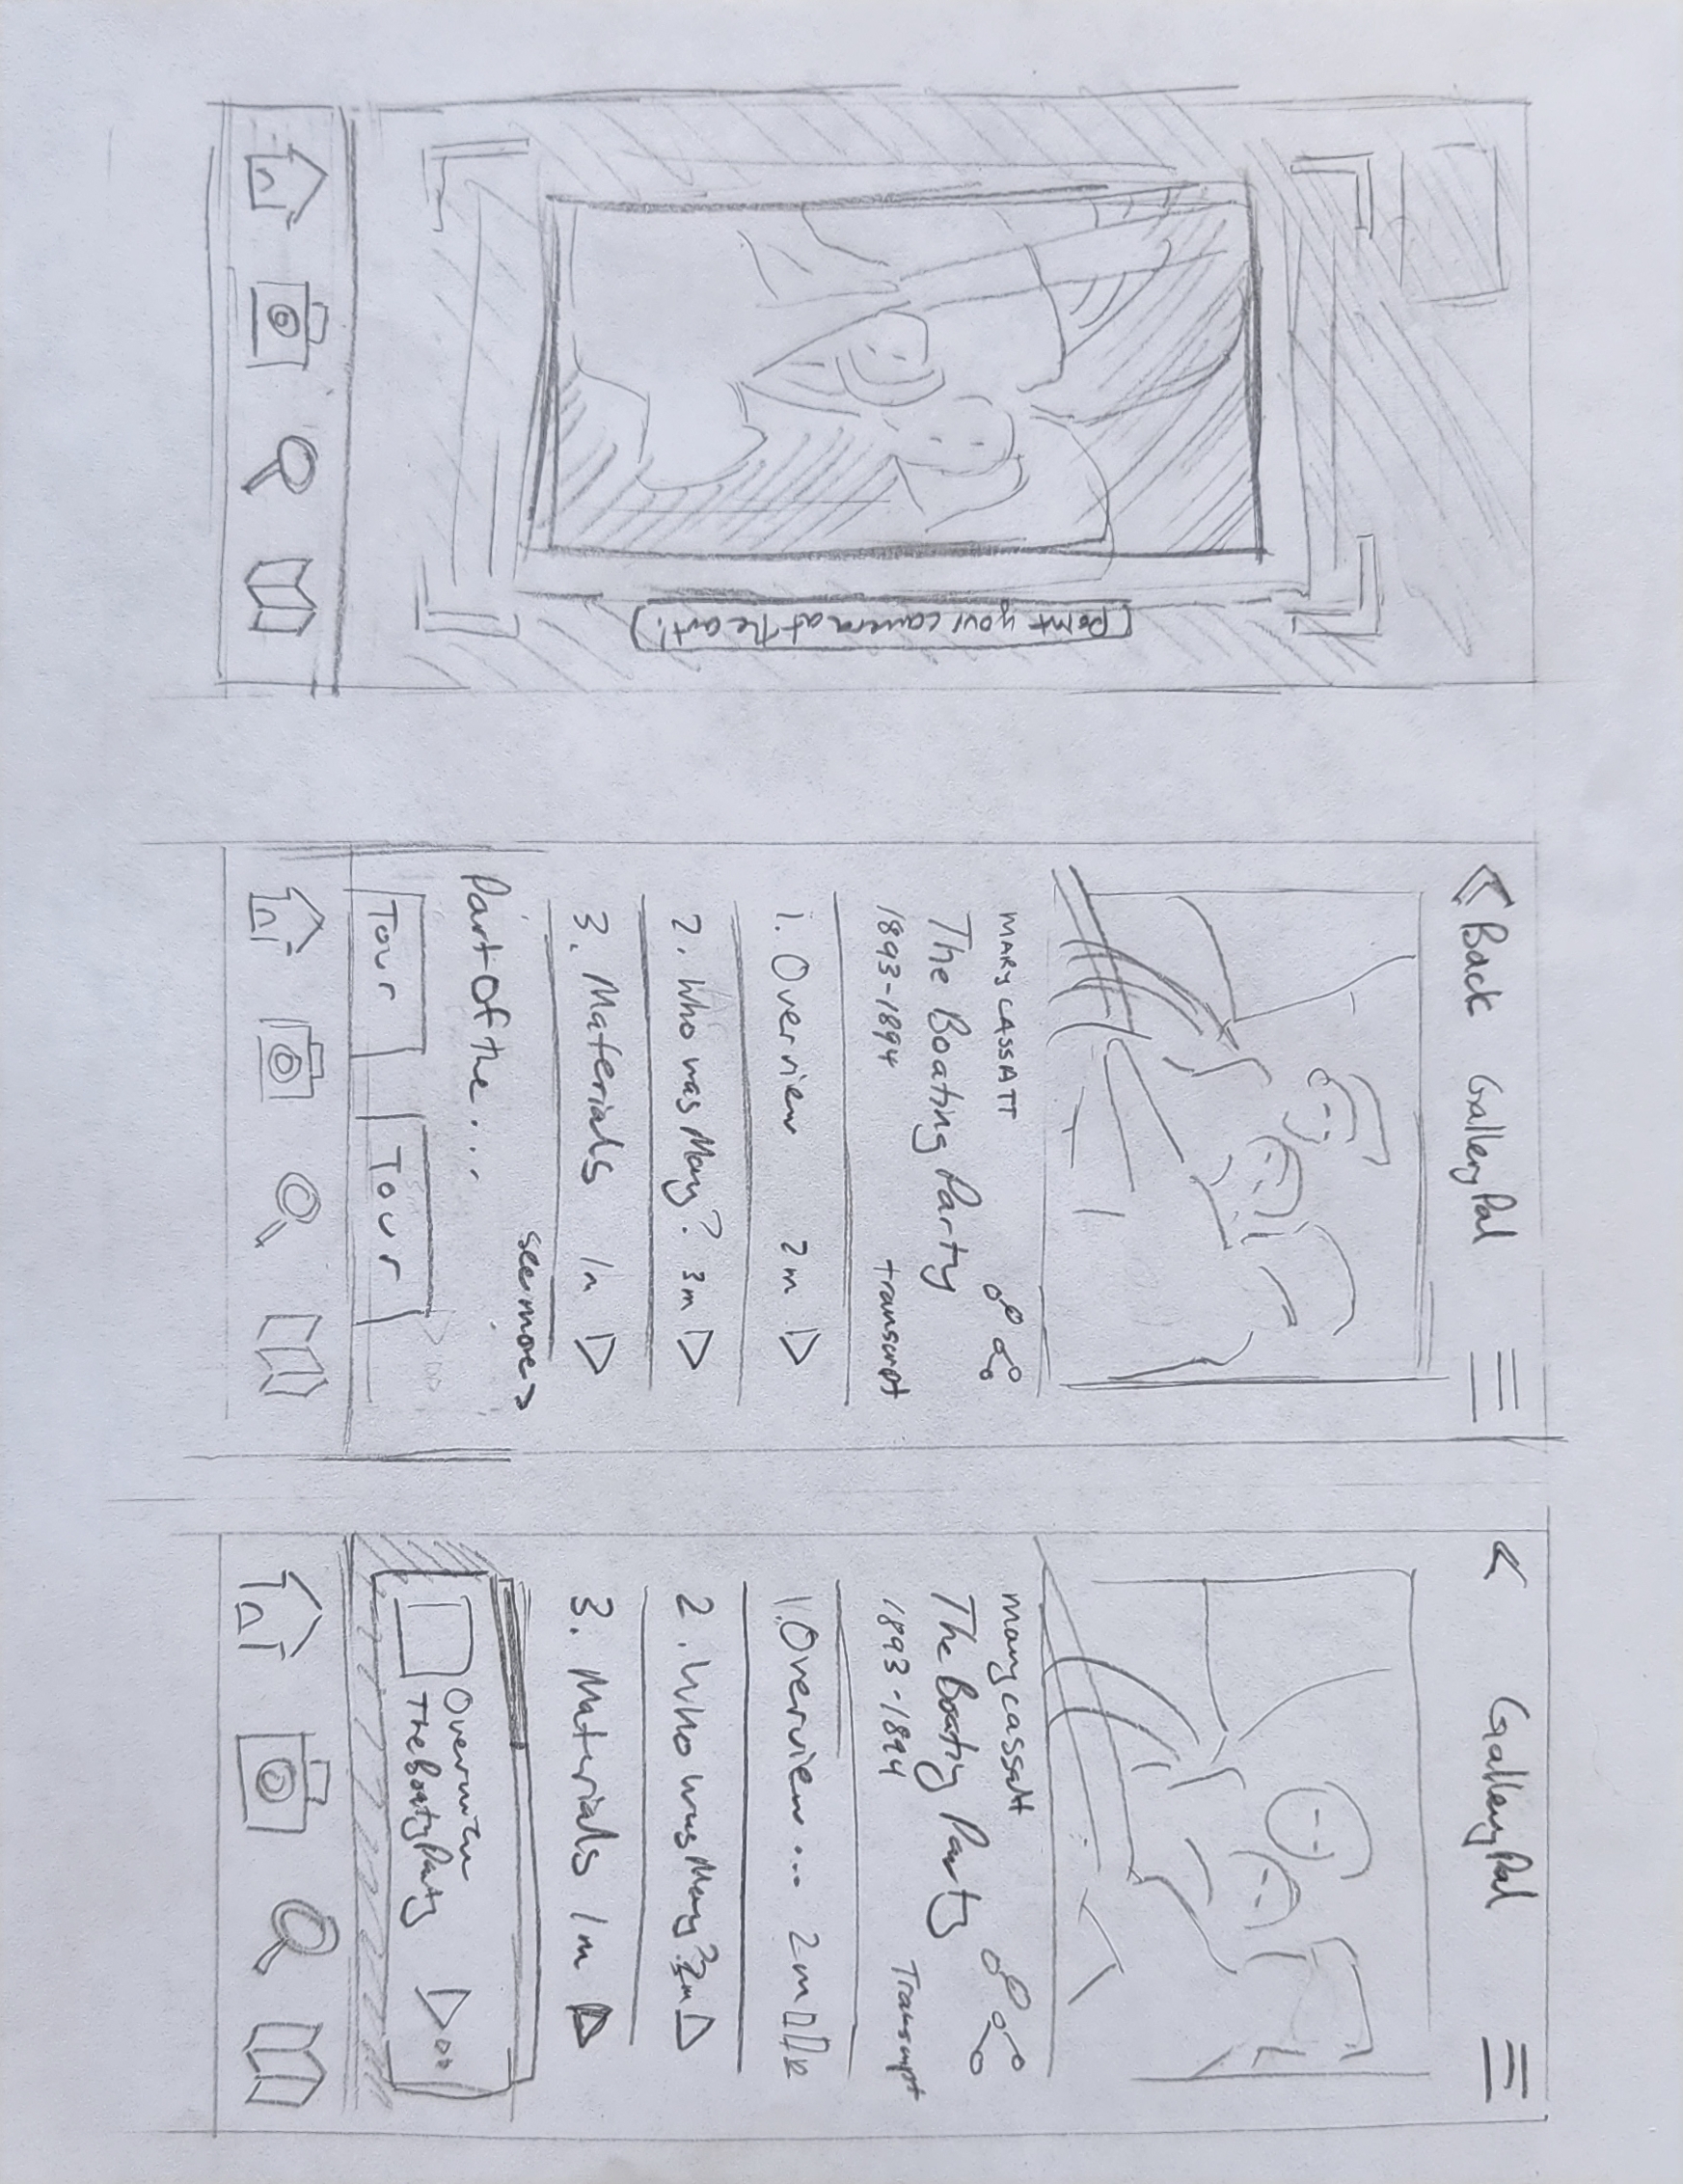 Point your camera at the art!
Back GalleryPal
MARY CASSATT
The Boating Party
1893-1894 transcript
1. Overview 2m
2. Who was Mary? 3m
3. Materials 1m
see more >
Part Of the ...
Tour Tour
GalleryPal
mary cassatt
The Boating Party
1893-1894 Transcript
1. Overview ... 2m
2. Who was Mary?
3. Materials 1m
Overview
The Boaty Party